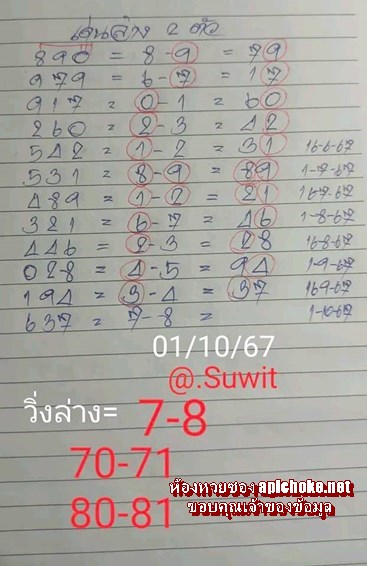 เด่นล่าง 2 ตัว
890 = 8-9 = 79
979 = 6-7 = 17
917 = 0-1 = 60
260 = 2-3 = 42
542 = 1-2 = 31 16-6-67
531 = 8-9 = 89 1-7-67
489 = 1-2 = 21 16-7-67
321 = 6-7 = 46 1-8-67
446 = 2-3 = 28 16-8-67
028 = 4-5 = 94 1-9-67
194 = 3-4 = 37 16-9-67
637 = 7-8 = 1-10-67
01/10/67
@.Suwit
วิ่งล่าง= 7-8
70-71
80-81
ห้องหวยซอง apichoke.net
ขอบคุณเจ้าของข้อมูล